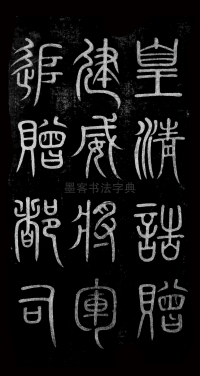 皇清誥贈
建威將軍
追贈都司
墨客书法字典